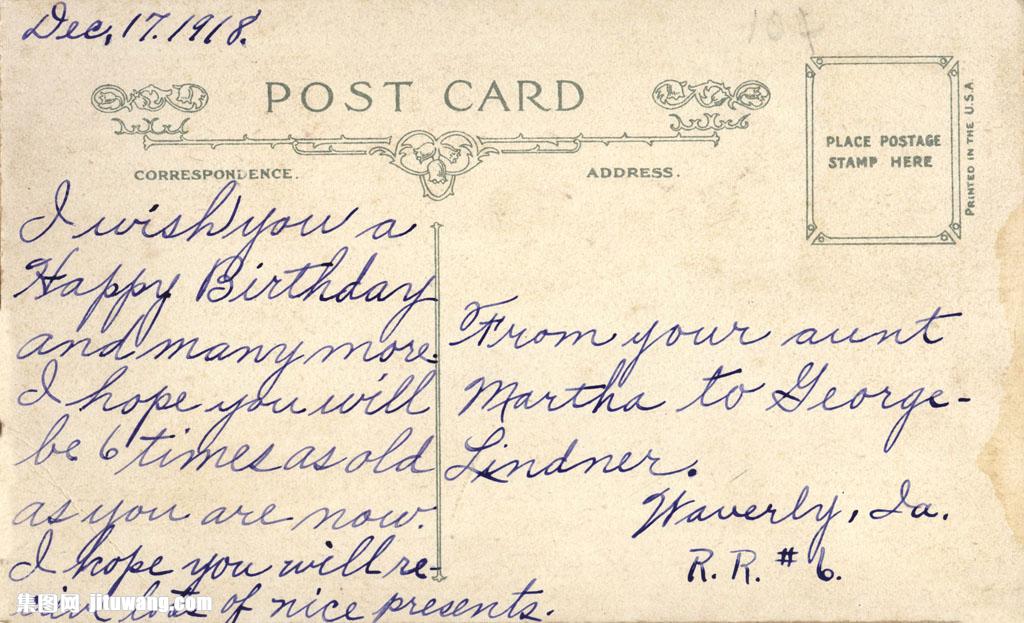 Dec, 17. 1918.
10¢
POST CARD
CORRESPONDENCE.
ADDRESS.
PLACE POSTAGE
STAMP HERE
PRINTED IN THE U.S.A
I wish you a
Happy Birthday
and many more.
I hope you will
be 6 times as old
as you are now.
I hope you will re-
ceive lots of nice presents.
From your aunt
Martha to George-
Lindner.
Waverly, Ia.
R. R. # 6.
集图网 jituwang.com